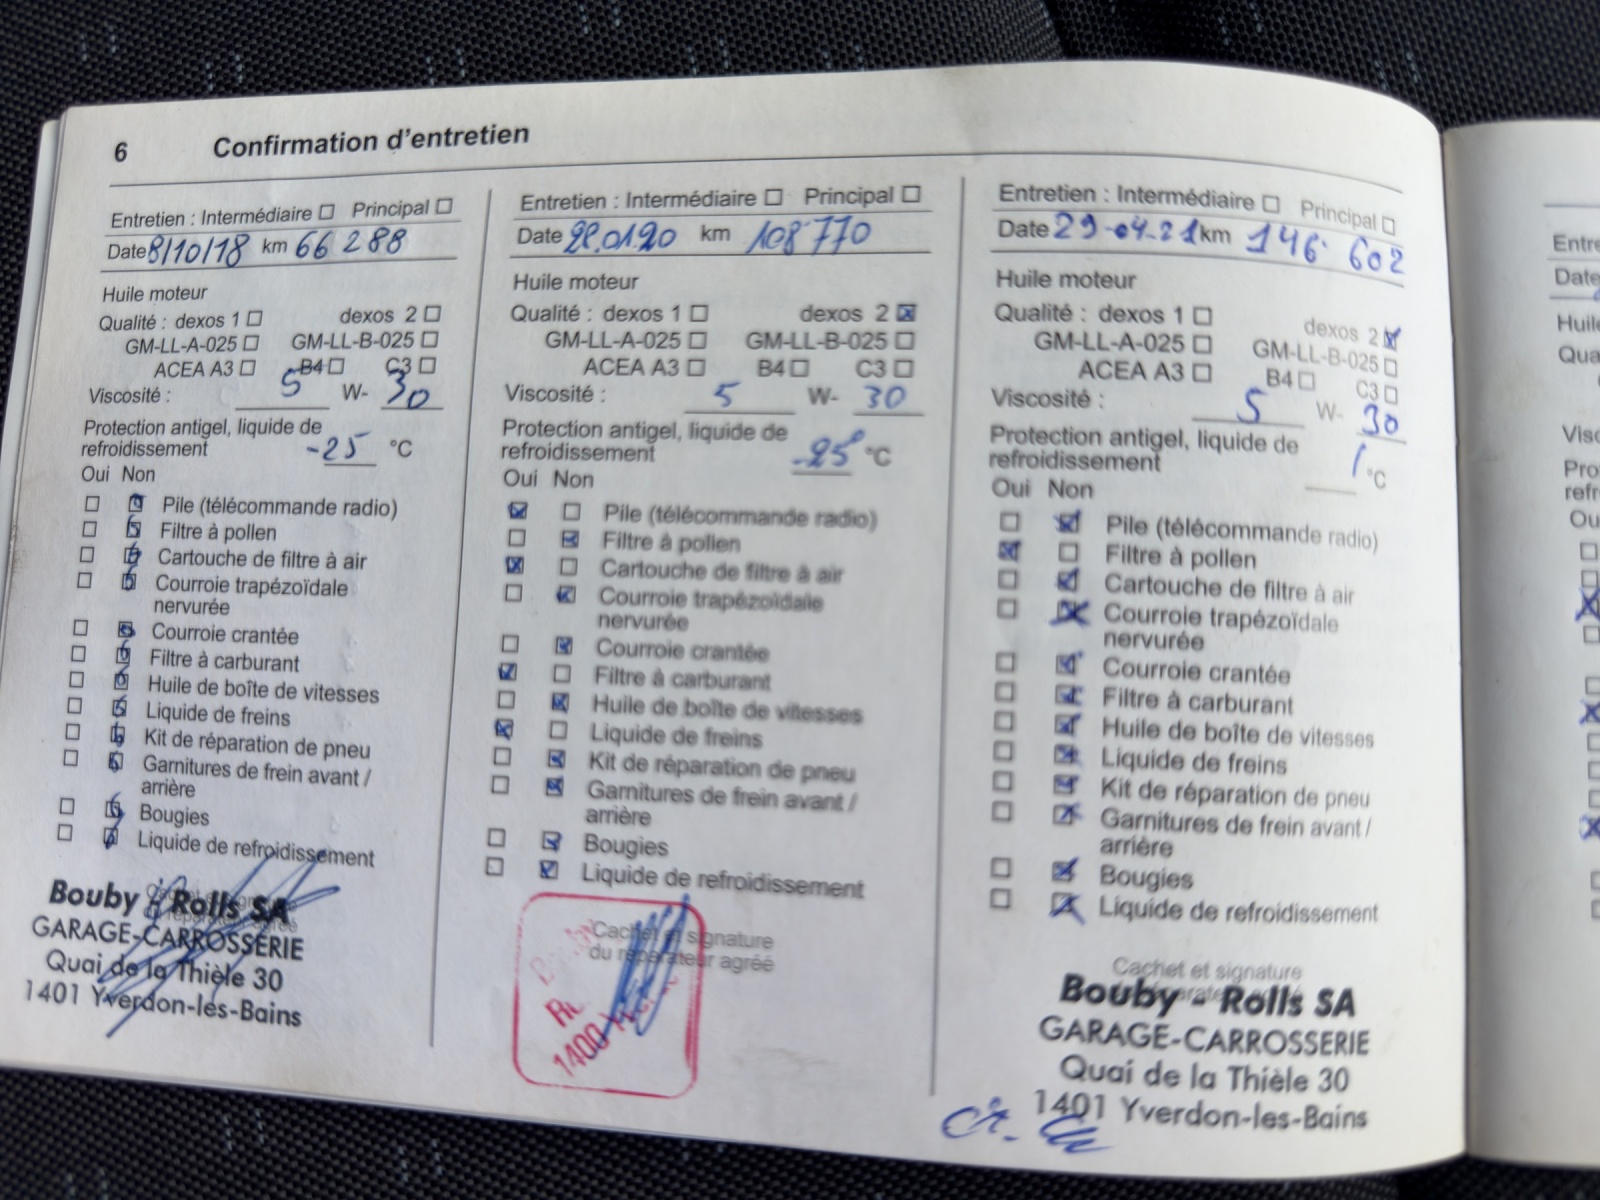 6 Confirmation d'entretien
Entretien : Intermédiaire ☐ Principal ☐
Date 8/10/18 km 66 288
Huile moteur
Qualité : dexos 1 ☐ dexos 2 ☐
GM-LL-A-025 ☐ GM-LL-B-025 ☐
ACEA A3 ☐ B4 ☐ C3 ☐
Viscosité : 5 W- 30
Protection antigel, liquide de
refroidissement -25 °C
Oui Non
Pile (télécommande radio)
Filtre à pollen
Cartouche de filtre à air
Courroie trapézoïdale
nervurée
Courroie crantée
Filtre à carburant
Huile de boîte de vitesses
Liquide de freins
Kit de réparation de pneu
Garnitures de frein avant /
arrière
Bougies
Liquide de refroidissement
Bouby - Rolls SA
GARAGE-CARROSSERIE
Quai de la Thièle 30
1401 Yverdon-les-Bains
Entretien : Intermédiaire ☐ Principal ☐
Date 22.01.20 km 108'770
Huile moteur
Qualité : dexos 1 ☐ dexos 2 ☒
GM-LL-A-025 ☐ GM-LL-B-025 ☐
ACEA A3 ☐ B4 ☐ C3 ☐
Viscosité : 5 W- 30
Protection antigel, liquide de
refroidissement -25° °C
Oui Non
Pile (télécommande radio)
Filtre à pollen
Cartouche de filtre à air
Courroie trapézoïdale
nervurée
Courroie crantée
Filtre à carburant
Huile de boîte de vitesses
Liquide de freins
Kit de réparation de pneu
Garnitures de frein avant /
arrière
Bougies
Liquide de refroidissement
Cachet et signature
du réparateur agréé
1400
Entretien : Intermédiaire ☐ Principal ☐
Date 29-04-21 km 146' 602
Huile moteur
Qualité : dexos 1 ☐ dexos 2 ☒
GM-LL-A-025 ☐ GM-LL-B-025 ☐
ACEA A3 ☐ B4 ☐ C3 ☐
Viscosité : 5 W- 30
Protection antigel, liquide de
refroidissement / °C
Oui Non
Pile (télécommande radio)
Filtre à pollen
Cartouche de filtre à air
Courroie trapézoïdale
nervurée
Courroie crantée
Filtre à carburant
Huile de boîte de vitesses
Liquide de freins
Kit de réparation de pneu
Garnitures de frein avant /
arrière
Bougies
Liquide de refroidissement
Cachet et signature
Bouby - Rolls SA
GARAGE-CARROSSERIE
Quai de la Thièle 30
1401 Yverdon-les-Bains
Entre
Date
Huile
Qua
Visc
Pro
refr
Ou